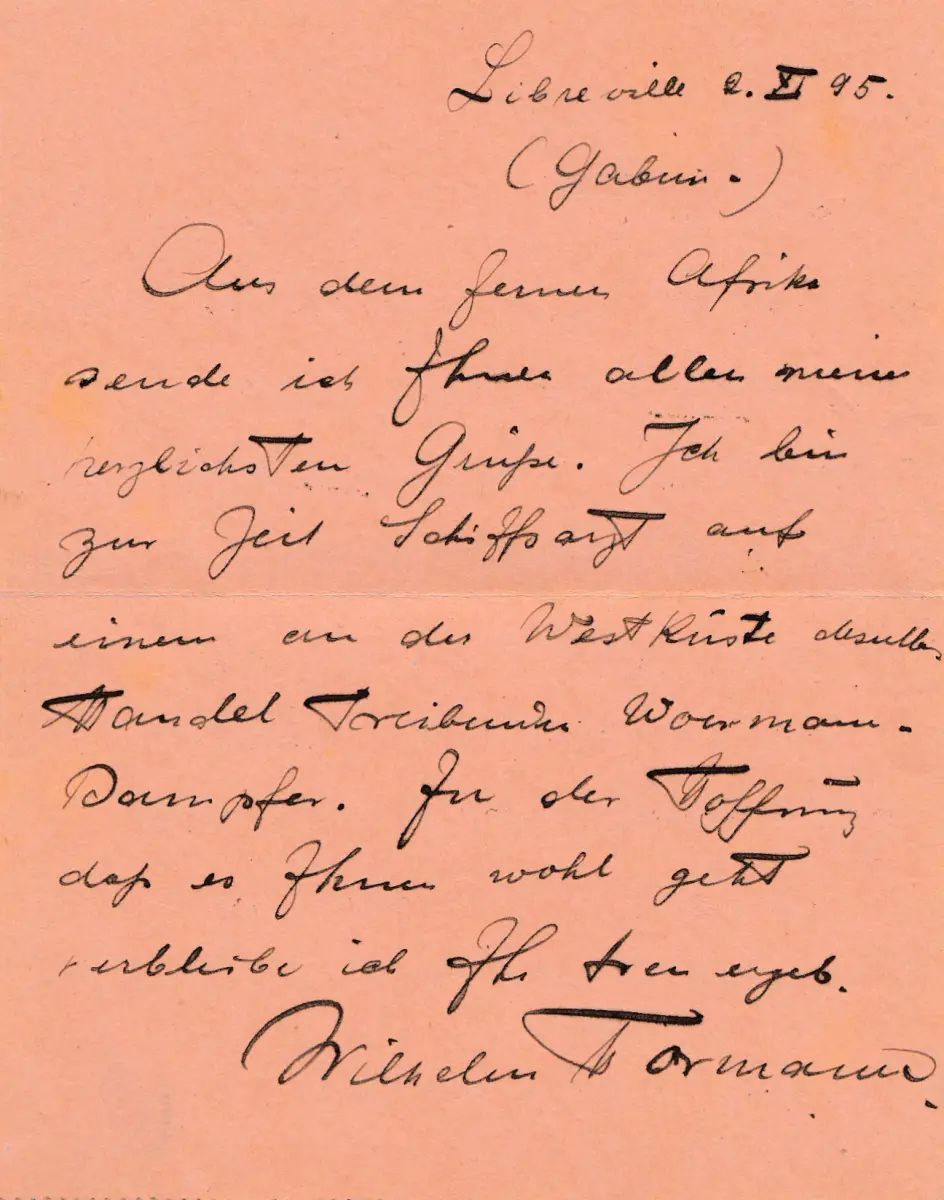 Libreville 2. XI 95.
(Gabun.)
Aus dem fernen Afrika
sende ich Ihnen allen meine
herzlichsten Grüße. Ich bin
zur Zeit Schiffsarzt auf
einem an der Westküste desselben
Handel treibenden Woermann-
Dampfer. In der Hoffnung
daß es Ihnen wohl geht
verbleibe ich Ihr treu ergeb.
Wilhelm Hormann.